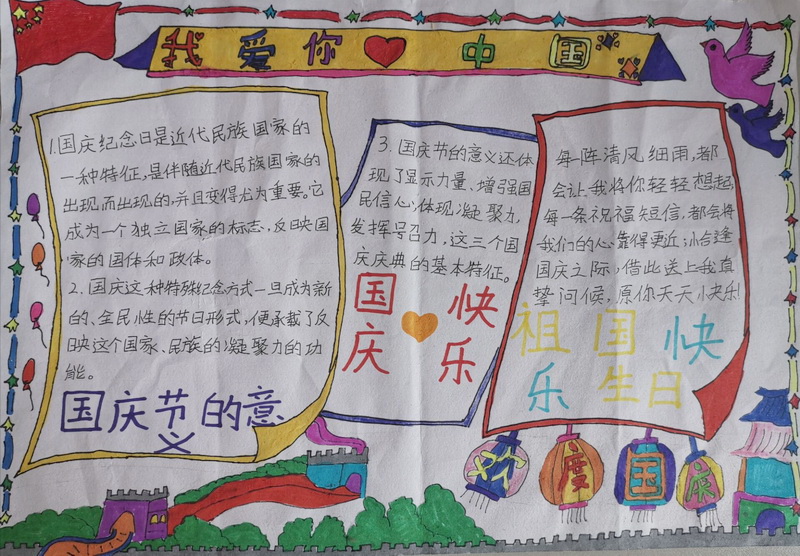 我爱你中国
1.国庆纪念日是近代民族国家的
一种特征,是伴随近代民族国家的
出现而出现的,并且变得尤为重要。它
成为一个独立国家的标志,反映国
家的国体和政体。
2.国庆这种特殊纪念方式一旦成为新
的、全民性的节日形式,便承载了反
映这个国家、民族的凝聚力的功
能。
国庆节的意
义
3.国庆节的意义还体
现了显示力量、增强国
民信心,体现凝聚力,
发挥号召力,这三个国
庆庆典的基本特征。
国庆
快乐
每一阵清风细雨,都
会让我将你轻轻想起;
每一条祝福短信,都会将
我们的心靠得更近;小合逢
国庆之际,借此送上我真
挚问候,愿你天天快乐!
祖国快
乐生日
欢度国庆